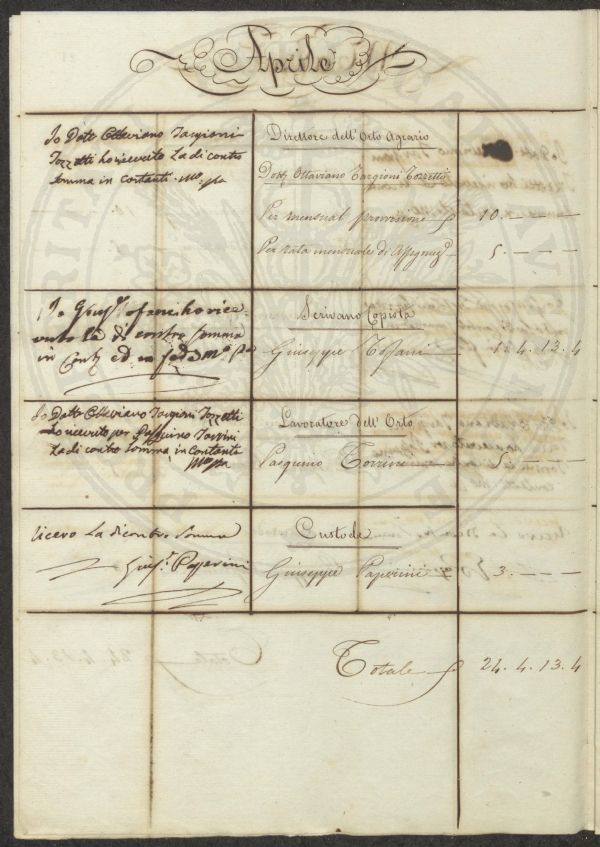 Aprile
Io Dott Ottaviano Targioni
Tozzetti ho ricevuto La di contro
Somma in contanti. Mo. ppa
Direttore dell'Orto Agrario
Dott. Ottaviano Targioni Tozzetti
Per mensual provvisione
10. — — —
Per rata mensuale di
5. — — —
Io ho rice
vuto la di contro Somma
in Conti ed in fede Mo ppa
Scrivano Copista
Giuseppe Tofani
4. 13. 4
Io Dott Ottaviano Targioni Tozzetti
ho ricevuto per Pasquino Torrini
La di contro Somma in Contante
Mo ppa
Lavoratore dell' Orto
Pasquino Torrini
5. — — —
ricevo La di contro Somma
Papevini
Custode
Giuseppe Papevini
3. — — —
Totale
24. 4. 13. 4